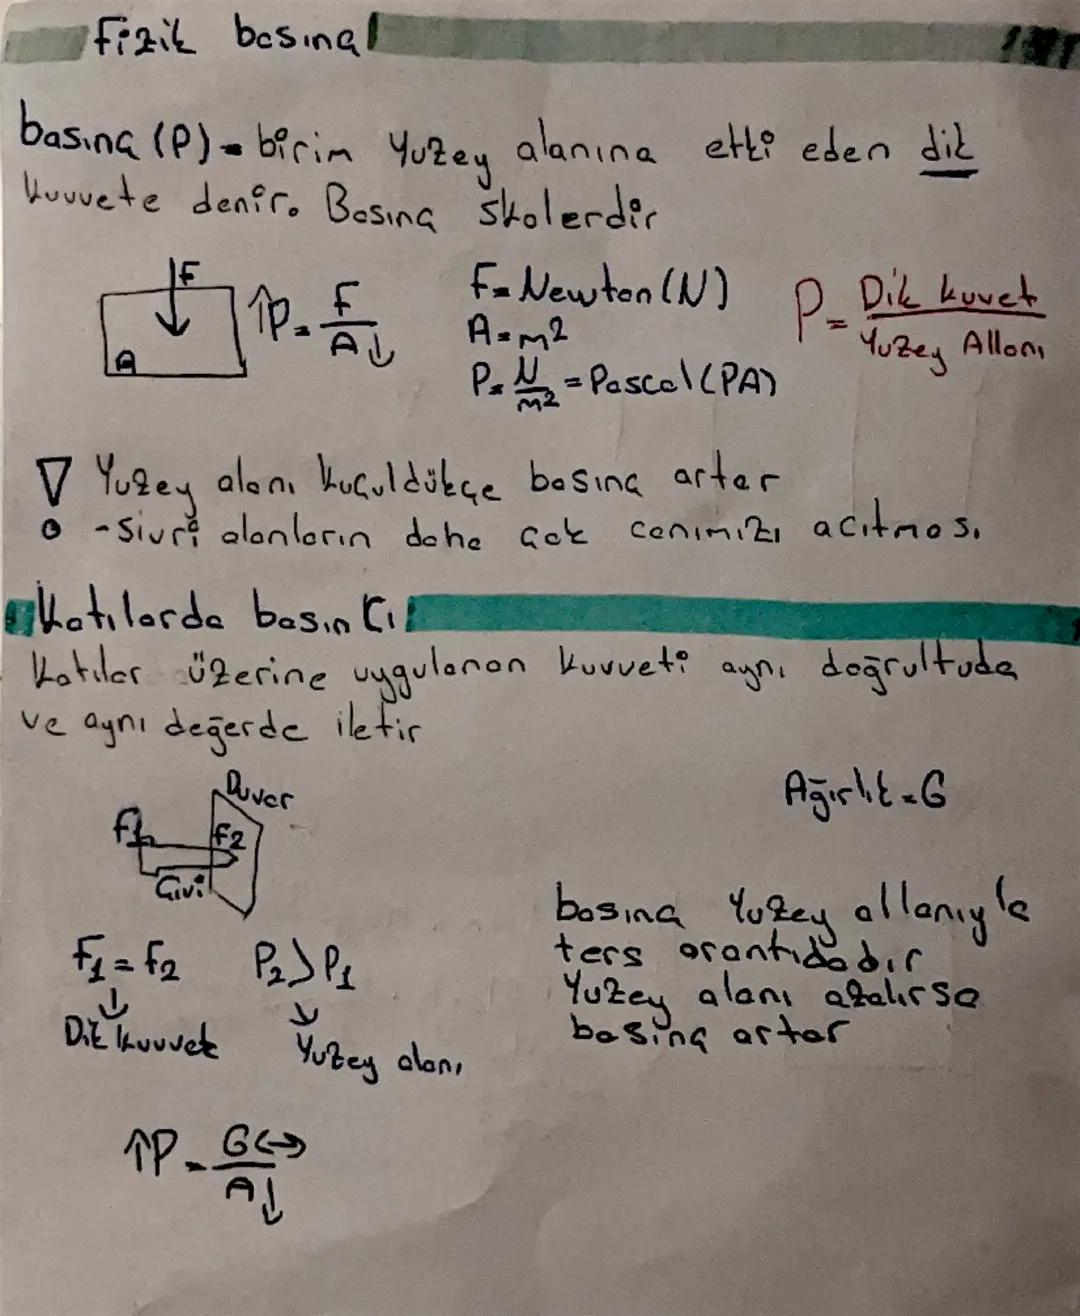 Fizik basınç
basınç (P) = birim Yuzey alanına etki eden dik
kuvvete denir. Basınç skalerdir
F
A
↑P = F/A↓
F = Newton (N)
A = m2
P = N/m2 = Pascal (PA)
P = Dik kuvet/Yuzey Allanı
Yuzey alanı kuçuldükçe basınç artar
- Sivri alanların daha çok canımızı acıtması
Katılarda basıncı
Katılar üzerine uygulanan kuvveti aynı doğrultuda
ve aynı değerde iletir
Duvar
F1
F2
Çivi
Ağırlık = G
F1 = F2 P2 > P1
Dik kuvvet Yuzey alanı
basınç Yuzey allanıyla
ters orantıdadır
Yuzey alanı azalırsa
basinç artar
↑P = G↔/A↓